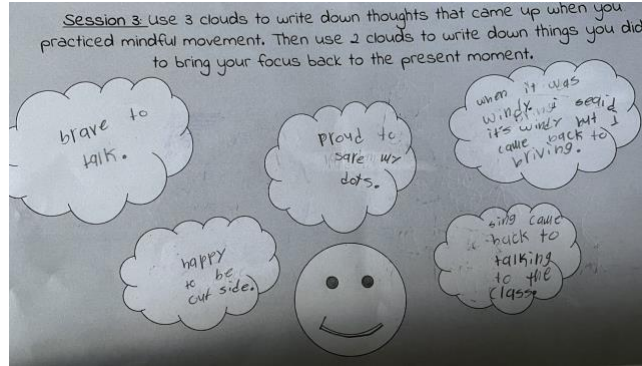 Session 3: Use 3 clouds to write down thoughts that came up when you
practiced mindful movement. Then use 2 clouds to write down things you did
to bring your focus back to the present moment.
brave to
talk.
proud to
sare my
dots.
when it was
windy. I segid
it's windy but I
came back to
briving.
happy
to be
out side.
sing came
back to
talking
to the
class